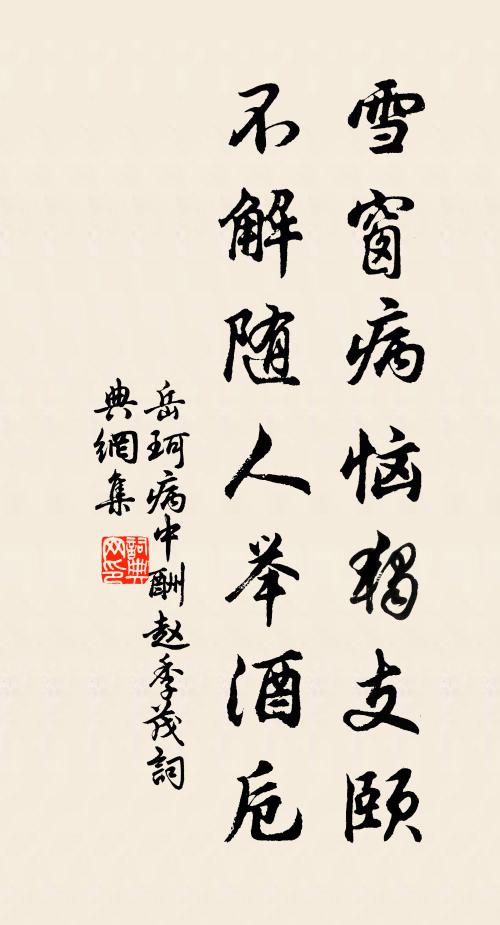 雪窗病恼独支颐
不解随人举酒卮
岳珂病中酬赵季茂詞
典網集
詞典网印